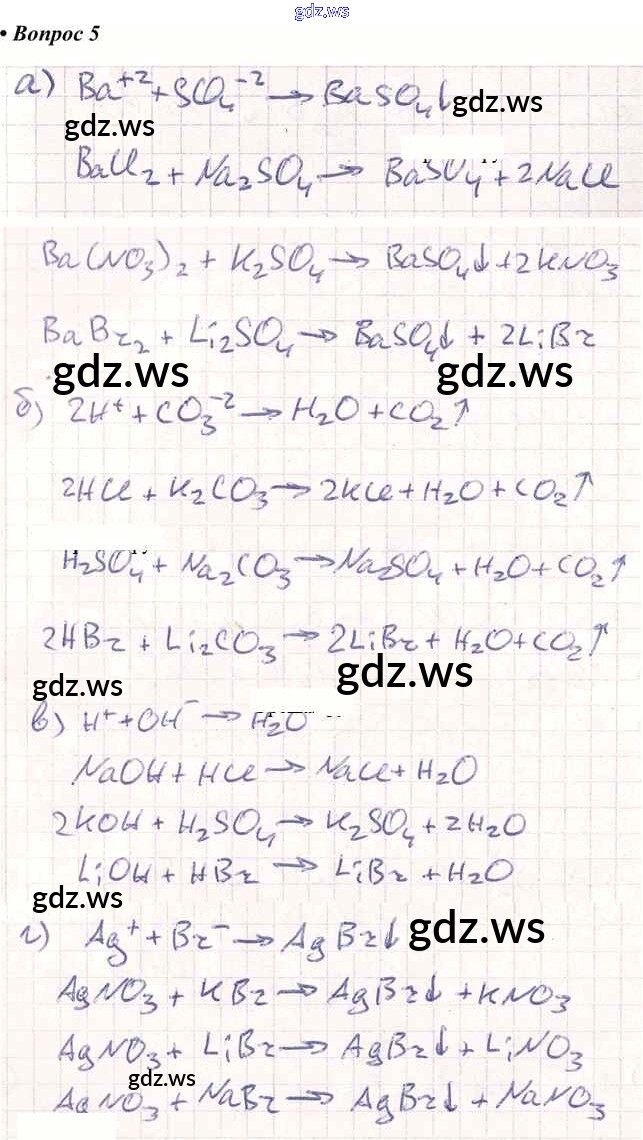 gdz.ws
• Вопрос 5
а) Ba⁺² + SO₄⁻² → BaSO₄↓ gdz.ws
gdz.ws
BaCl₂ + Na₂SO₄ → BaSO₄ + 2NaCl
Ba(NO₃)₂ + K₂SO₄ → BaSO₄↓ + 2KNO₃
BaBr₂ + Li₂SO₄ → BaSO₄↓ + 2LiBr
gdz.ws gdz.ws
б) 2H⁺ + CO₃⁻² → H₂O + CO₂↑
2HCl + K₂CO₃ → 2KCl + H₂O + CO₂↑
H₂SO₄ + Na₂CO₃ → Na₂SO₄ + H₂O + CO₂↑
2HBr + Li₂CO₃ → 2LiBr + H₂O + CO₂↑
gdz.ws gdz.ws
в) H⁺ + OH⁻ → H₂O
NaOH + HCl → NaCl + H₂O
2KOH + H₂SO₄ → K₂SO₄ + 2H₂O
LiOH + HBr → LiBr + H₂O
gdz.ws
г) Ag⁺ + Br⁻ → AgBr↓ gdz.ws
AgNO₃ + KBr → AgBr↓ + KNO₃
AgNO₃ + LiBr → AgBr↓ + LiNO₃
gdz.ws
AgNO₃ + NaBr → AgBr↓ + NaNO₃